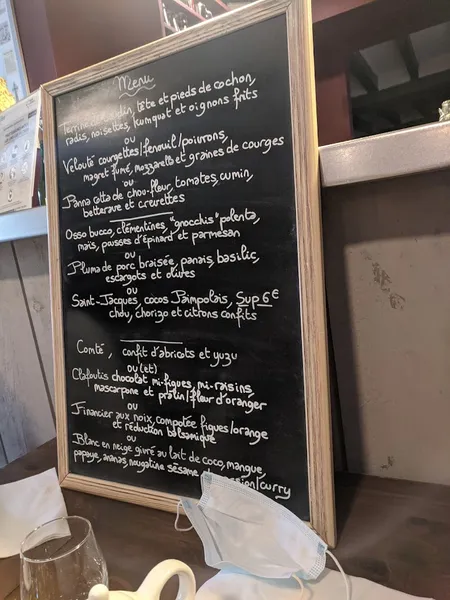 Menu
Terrine de , tête et pieds de cochon,
radis, noisettes, kumquat et oignons frits
ou
Velouté courgettes/fenouil/poivrons,
magret fumé, mozzarella et graines de courges
ou
Panna cotta de chou-fleur, tomates, cumin,
betterave et crevettes
Osso bucco, clémentines, "gnocchis" polenta,
maïs, pousses d'épinard et parmesan
ou
Pluma de porc braisée, panais, basilic,
escargots et olives
ou
Saint-Jacques, cocos Paimpolais, Sup 6€
chou, chorizo et citrons confits
Comté, confit d'abricots et yuzu
ou (et)
Clafoutis chocolat mi-figues, mi-raisins,
mascarpone et pralin/fleur d'oranger
ou
Financier aux noix, compotée figues/orange
et réduction balsamique
ou
Blanc en neige givré au lait de coco, mangue,
papaye, ananas, nougatine sésame /curry